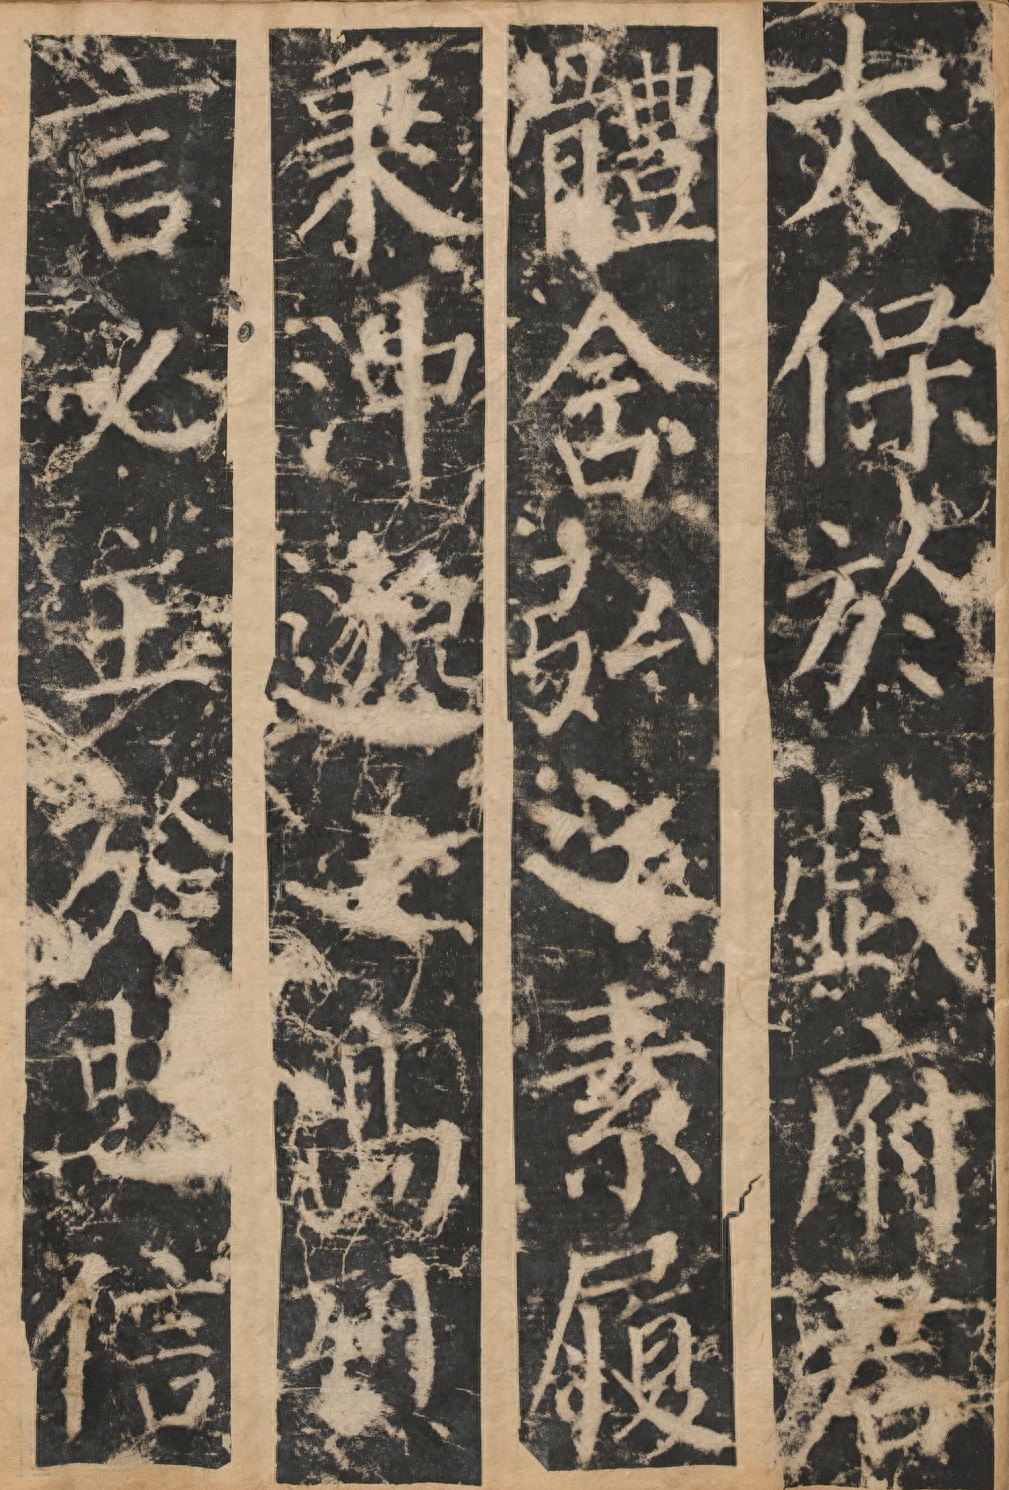 太保於戲府君
體含弘之素履
秉沖邈之高
言必主於忠信